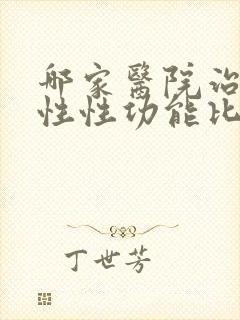 哪家醫院治
性性功能比
丁世芳